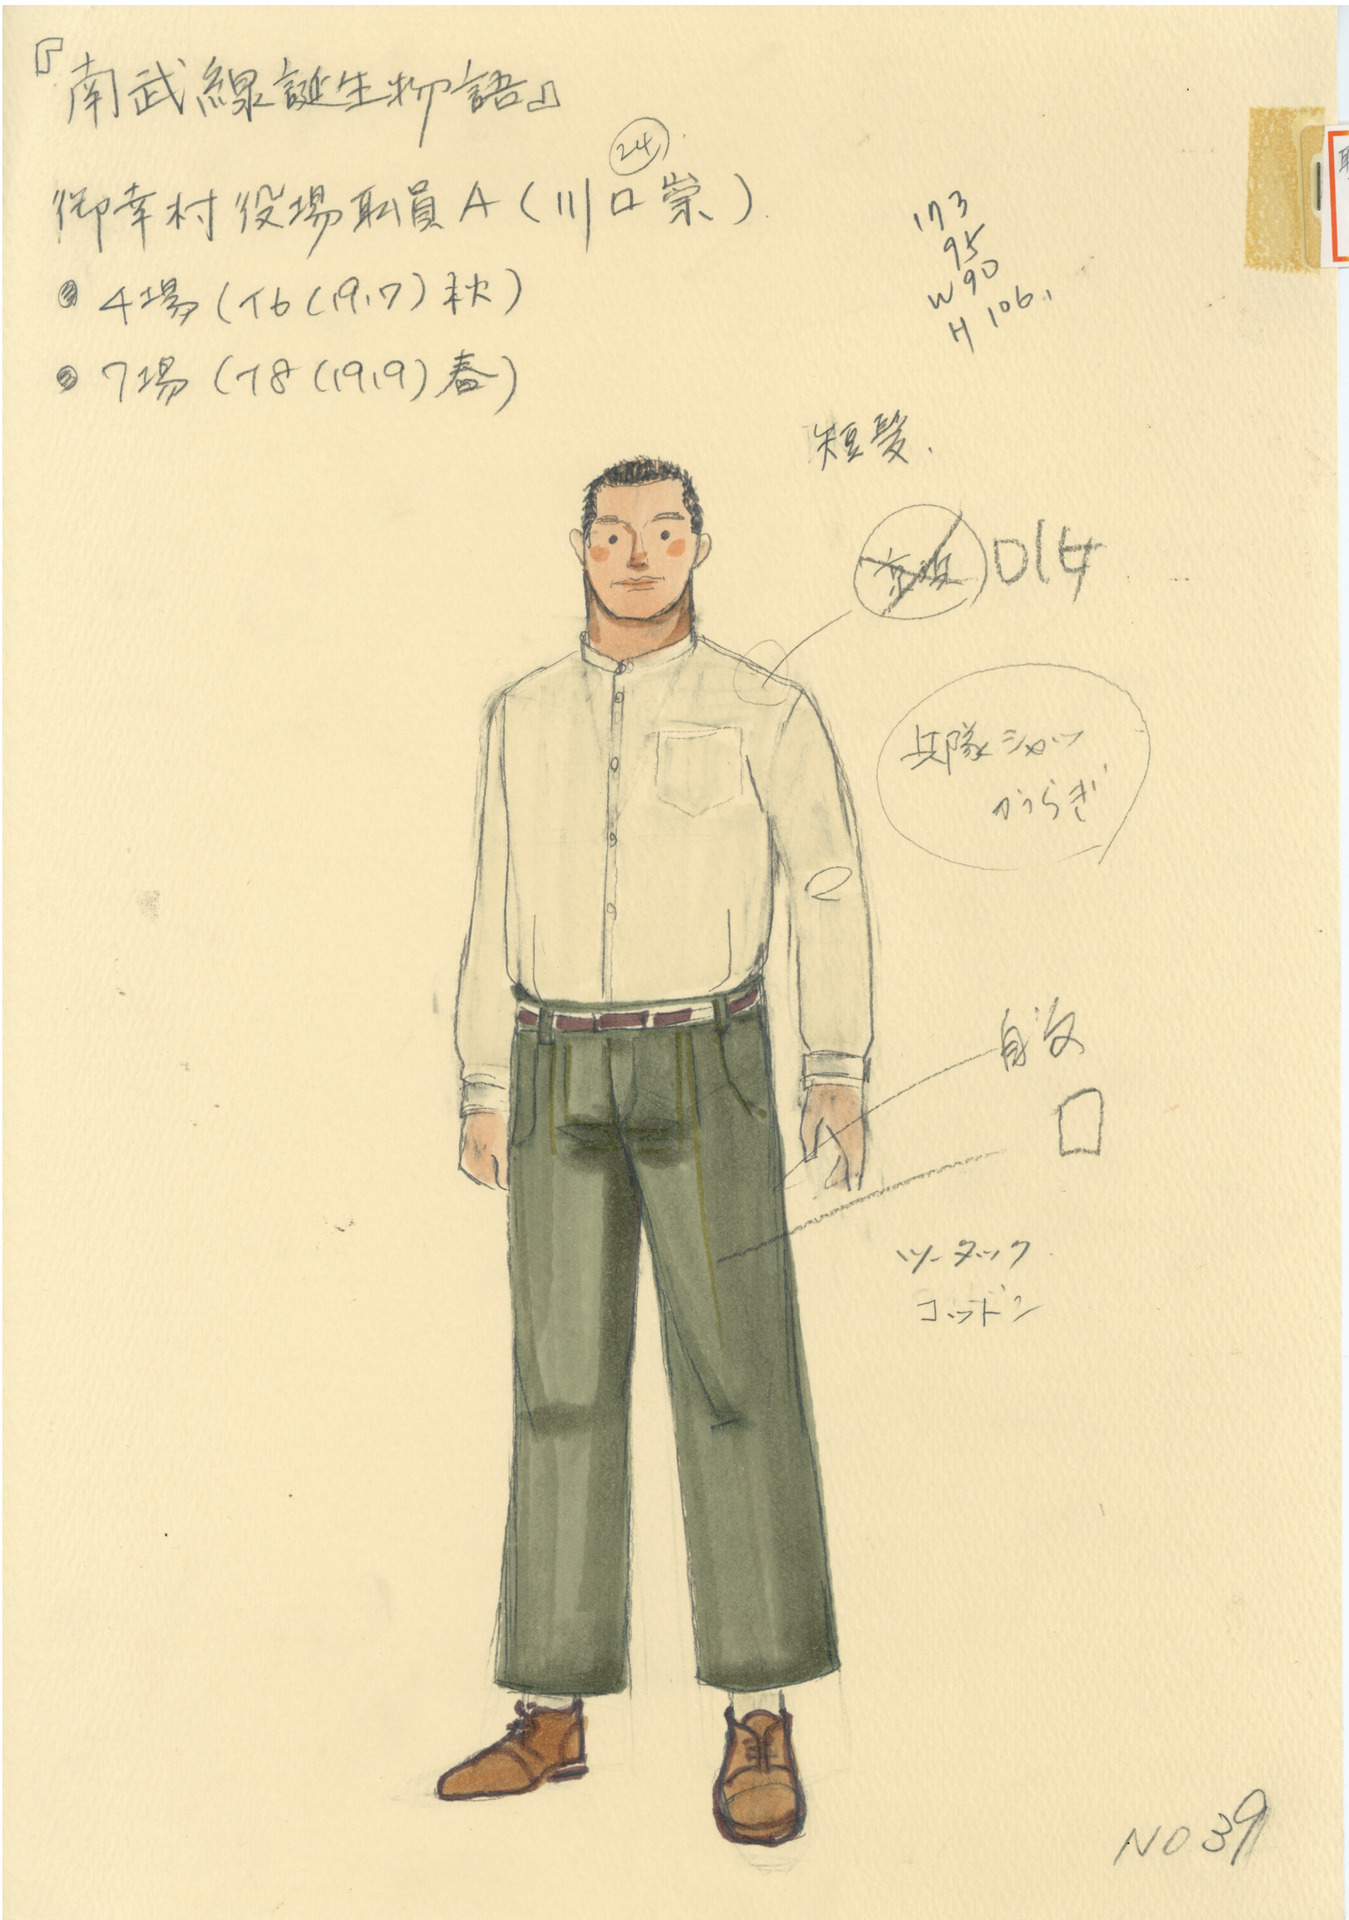 『南武線誕生物語』
24
御幸村役場職員A(川口崇)
4場(T6(1917)秋)
7場(T8(1919)春)
173
95
W 90
H 106
短髪.
兵隊シャツ
かつらぎ
自次
ツータック
コットン
NO 39